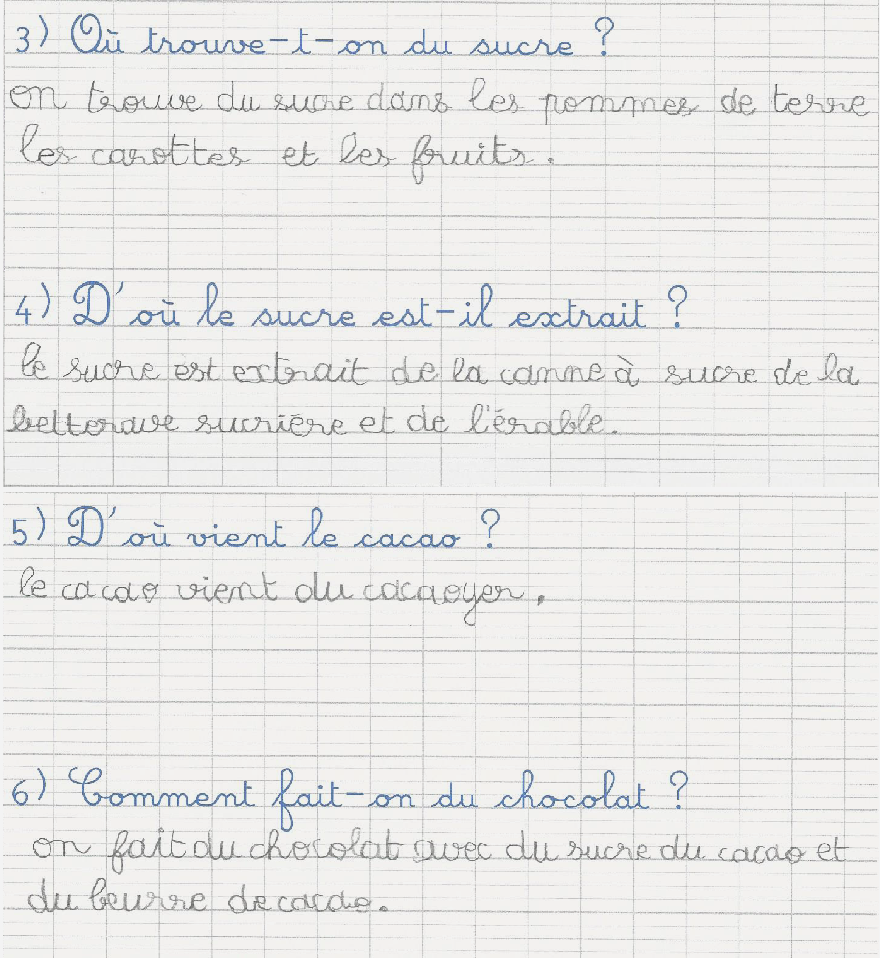 3) Où trouve-t-on du sucre ?
on trouve du sucre dans les pommes de terre
les carottes et les fruits.
4) D'où le sucre est-il extrait ?
le sucre est extrait de la canne à sucre de la
betterave sucrière et de l'érable.
5) D'où vient le cacao ?
le cacao vient du cacaoyer.
6) Comment fait-on du chocolat ?
on fait du chocolat avec du sucre du cacao et
du beurre de cacao.